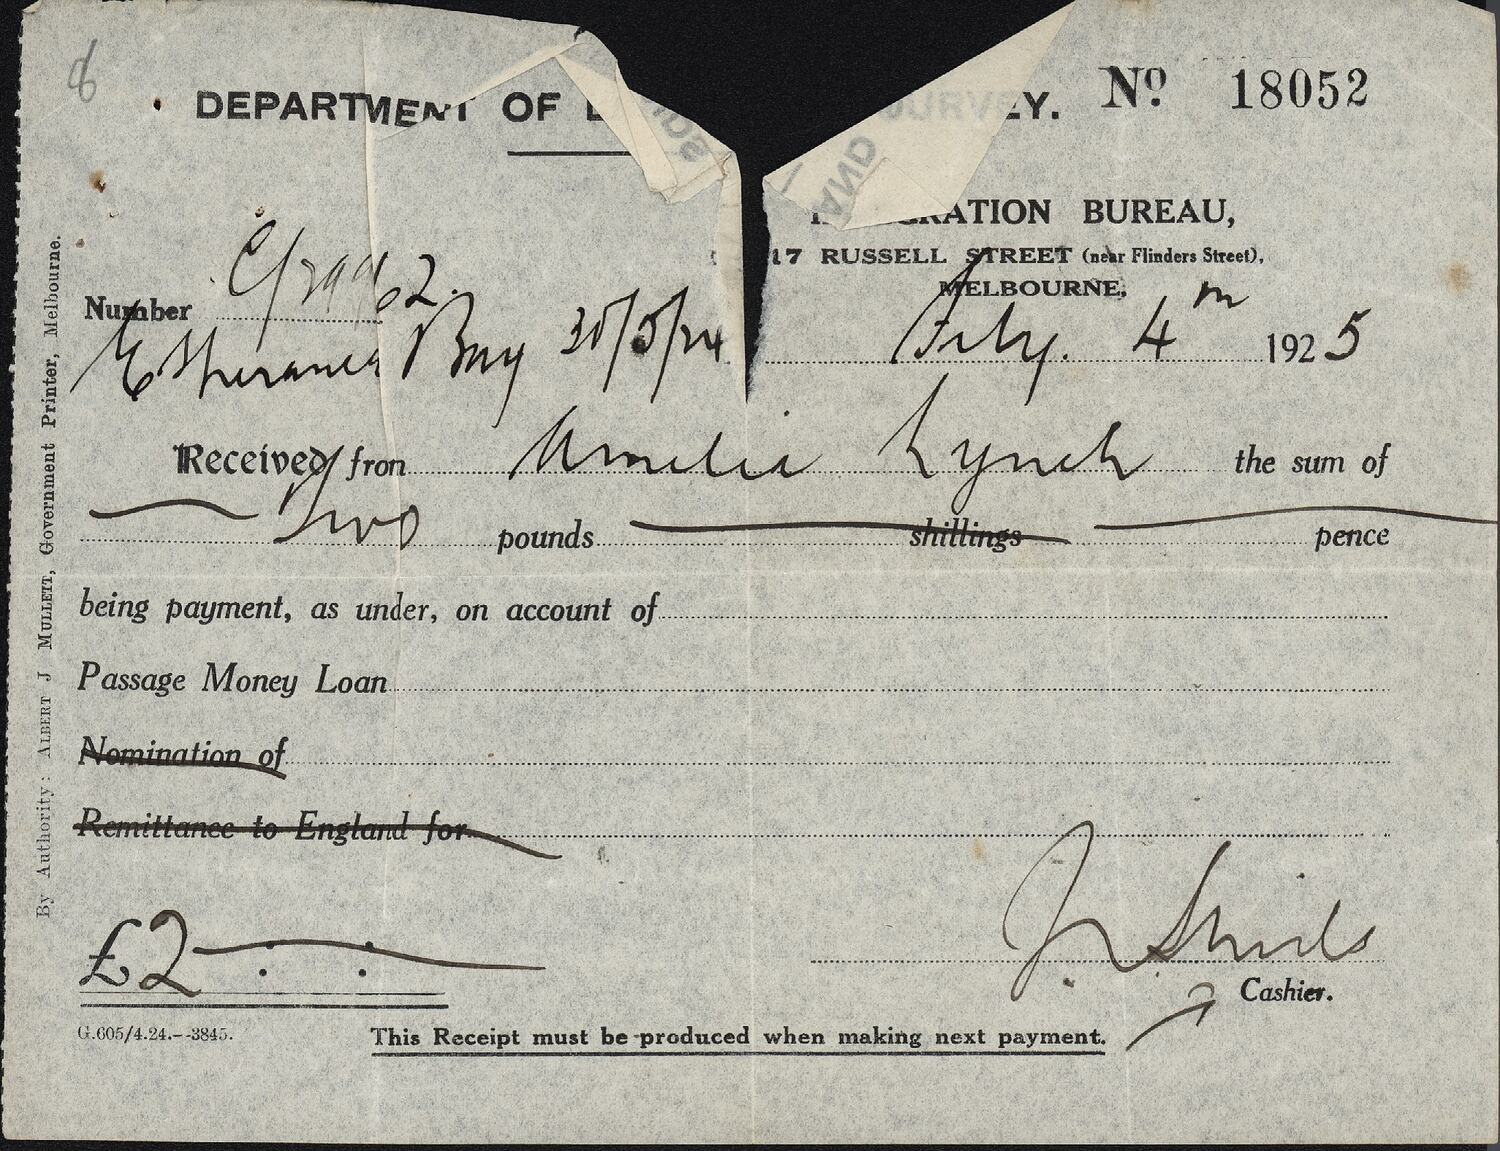 8
DEPARTMENT OF EY. No. 18052
RATION BUREAU,
17 RUSSELL STREET (near Flinders Street),
MELBOURNE,
Number
Esperance Bay 30/5/24 Feby. 4th 1925
Received from Amelia Lynch the sum of
Two pounds shillings pence
being payment, as under, on account of
Passage Money Loan
Nomination of
Remittance to England for
£2 : :
Cashier.
G.605/4.24.--3845. This Receipt must be produced when making next payment.
By Authority: ALBERT J MULLETT, Government Printer, Melbourne.